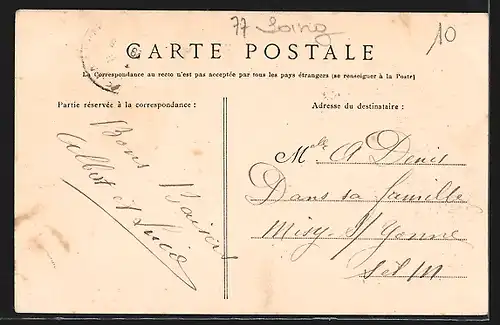 77 Soing
10
CARTE POSTALE
La Correspondance au recto n'est pas acceptée par tous les pays étrangers (se renseigner à la Poste)
Partie réservée à la correspondance :
Bons Baisers
Albert et Lucie
Adresse du destinataire :
Melle A Denis
Dans sa famille
Misy S/ Yonne
S et M